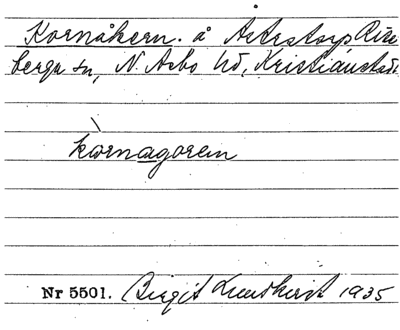 Kornåkern. å Åstorp Ris
berga sn, N. Åsbo hd, Kristianstads
kòrnagoren
Nr 5501. Birgit Lundkvist 1935